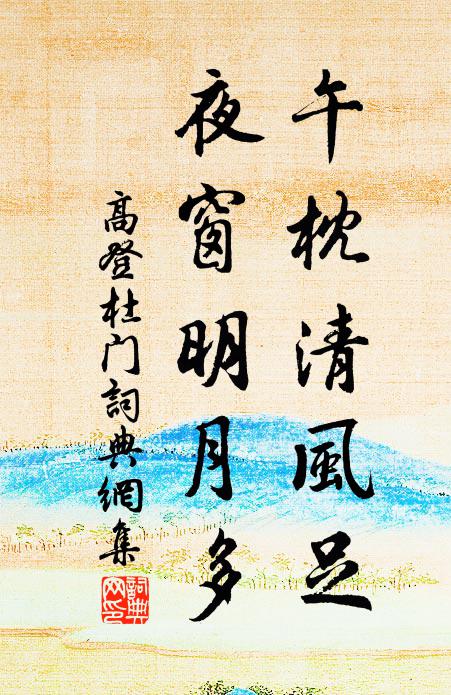 午枕清風足
夜窗明月多
高登杜门詞典網集
詞典网印